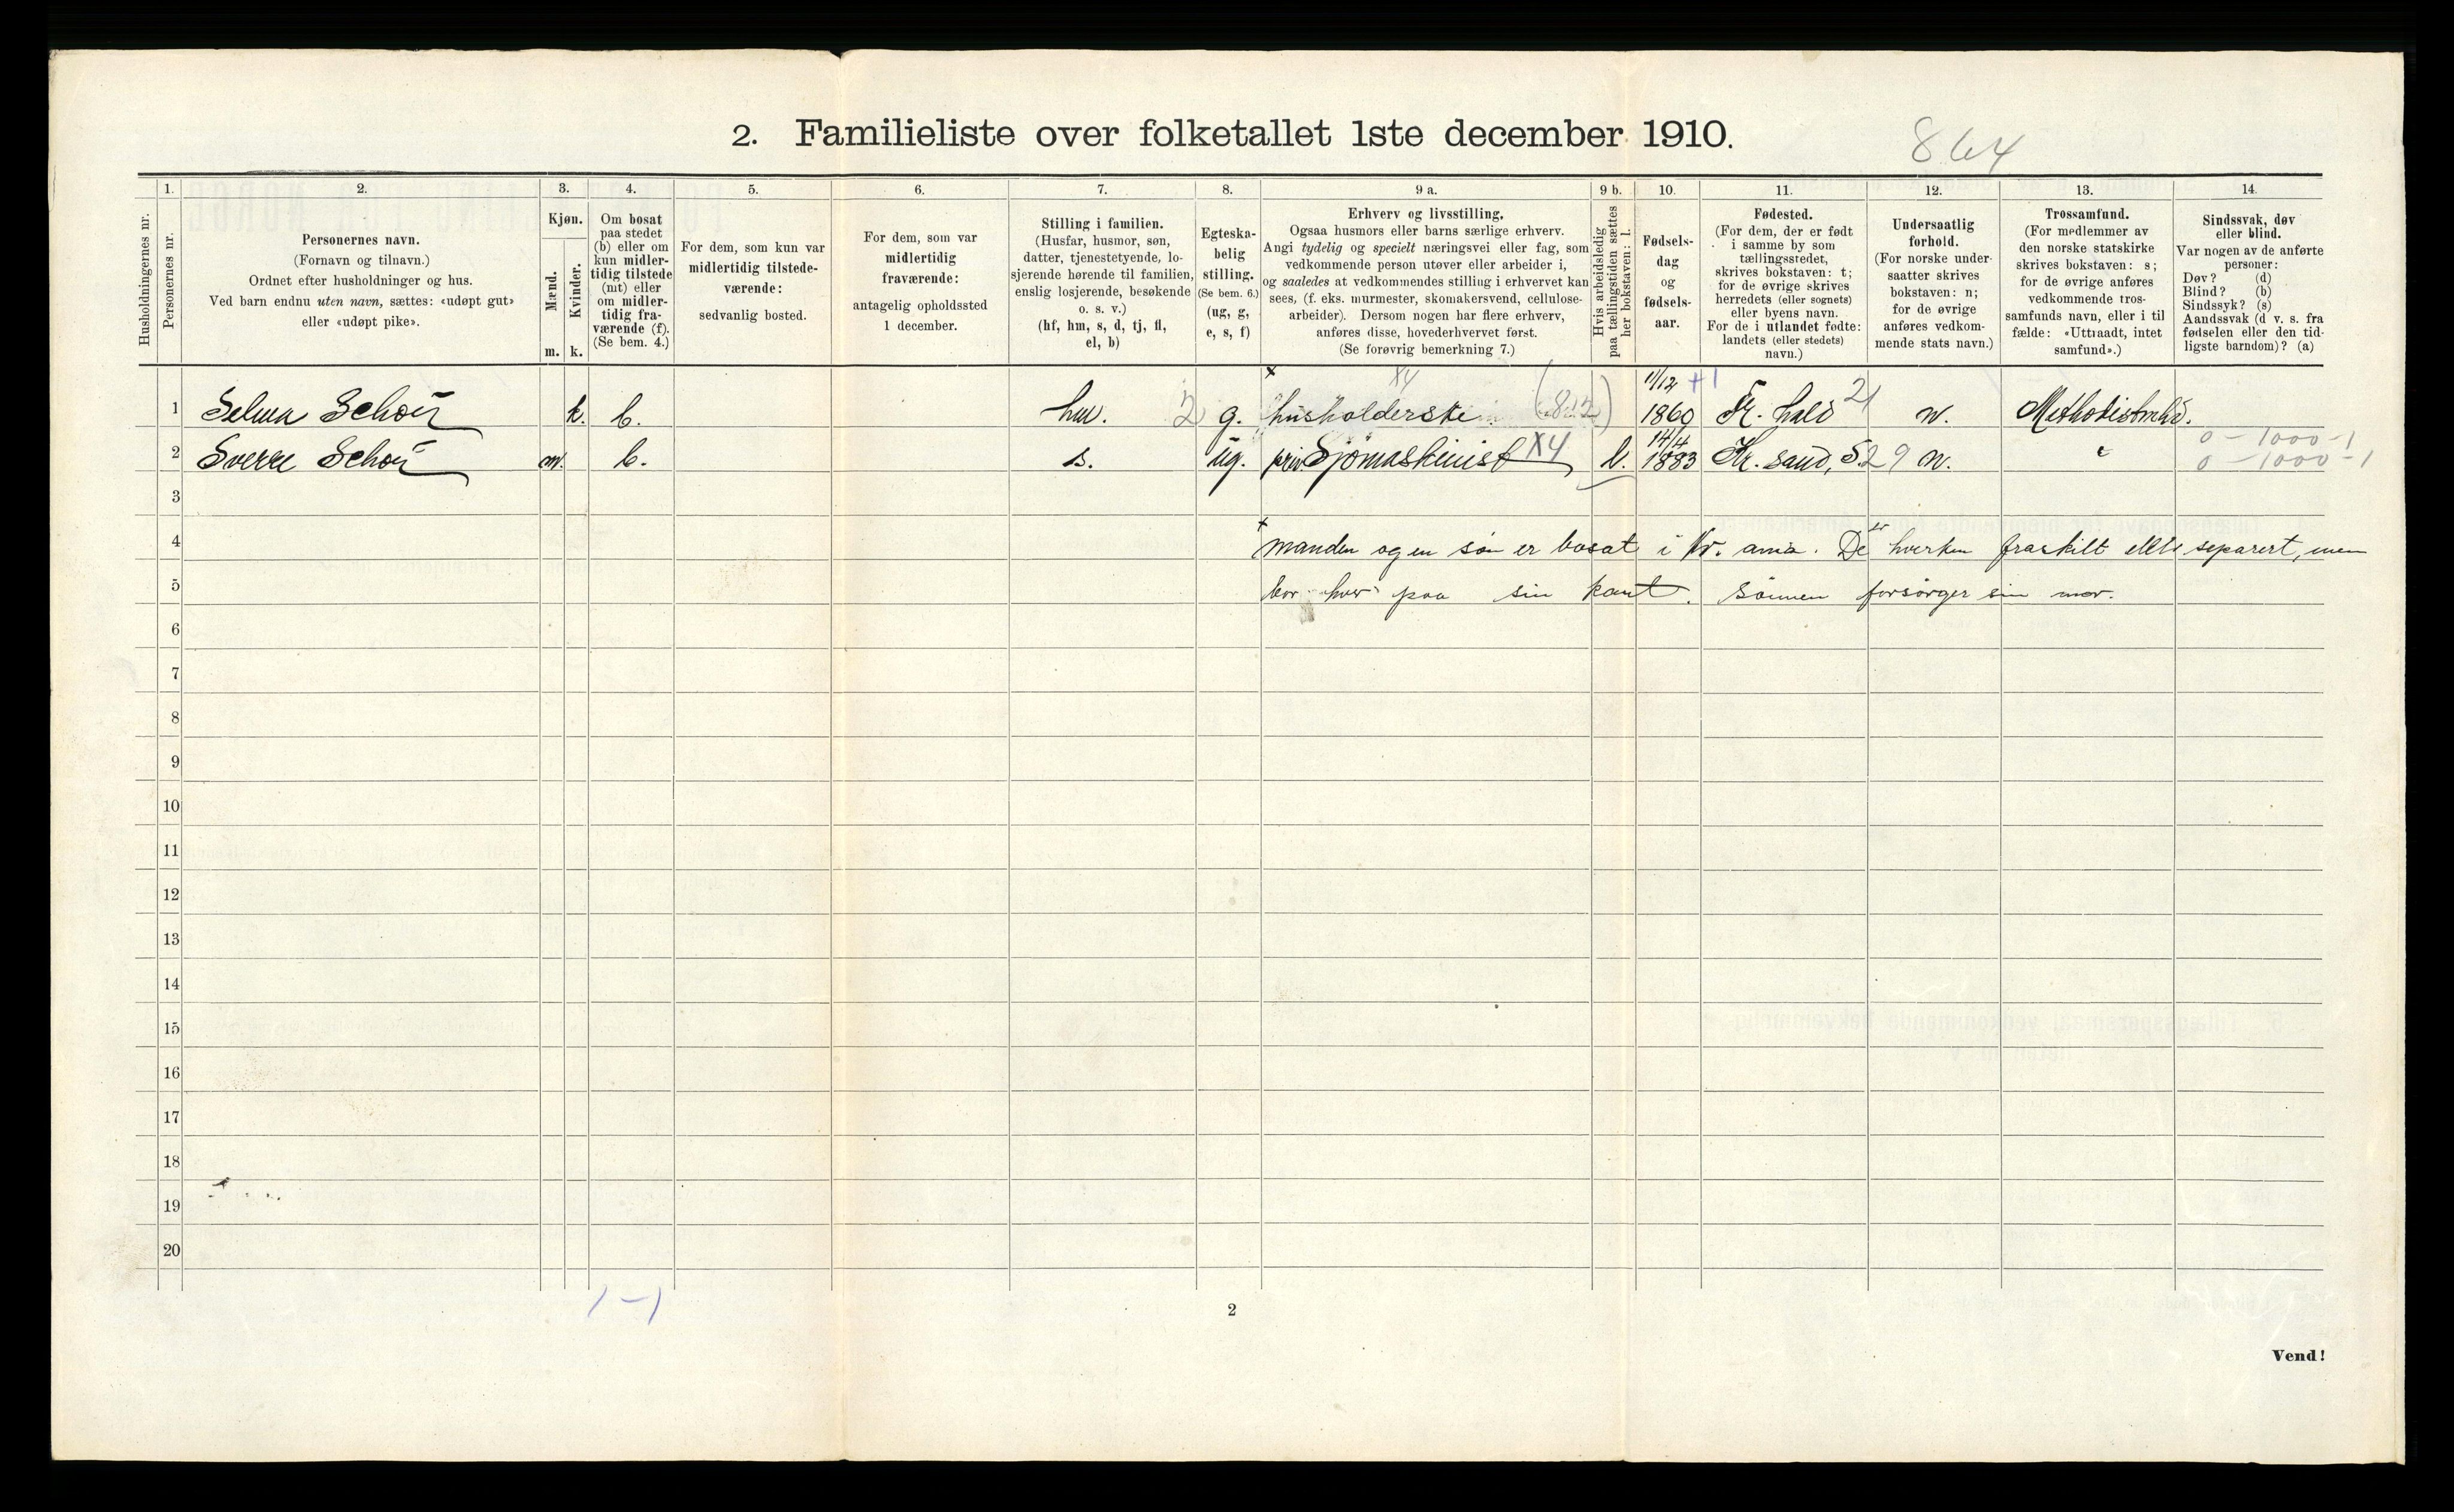 2. Familieliste over folketallet 1ste december 1910.
864
Husholdningernes nr.
1.
Personernes nr.
2.
Personernes navn.
(Fornavn og tilnavn.)
Ordnet efter husholdninger og hus.
Ved barn endnu uten navn, sættes: «udøpt gut»
eller «udøpt pike».
3.
Kjøn.
Mænd.
Kvinder.
m. k.
4.
Om bosat
paa stedet
(b) eller om
kun midler-
tidig tilstede
(mt) eller
om midler-
tidig fra-
værende (f).
(Se bem. 4.)
5.
For dem, som kun var
midlertidig tilstede-
værende:
sedvanlig bosted.
6.
For dem, som var
midlertidig
fraværende:
antagelig opholdssted
1 december.
7.
Stilling i familien.
(Husfar, husmor, søn,
datter, tjenestetyende, lo-
sjerende hørende til familien,
enslig losjerende, besøkende
o. s. v.)
(hf, hm, s, d, tj, fl,
el, b)
8.
Egteska-
belig
stilling.
(Se bem. 6.)
(ug, g,
e, s, f)
9 a.
Erhverv og livsstilling.
Ogsaa husmors eller barns særlige erhverv.
Angi tydelig og specielt næringsvei eller fag, som
vedkommende person utøver eller arbeider i,
og saaledes at vedkommendes stilling i erhvervet kan
sees, (f. eks. murmester, skomakersvend, cellulose-
arbeider). Dersom nogen har flere erhverv,
anføres disse, hovederhvervet først.
(Se forøvrig bemerkning 7.)
9 b.
Hvis arbeidsledig
paa tællingstiden sættes
her bokstaven: l.
10.
Fødsels-
dag
og
fødsels-
aar.
11.
Fødested.
(For dem, der er født
i samme by som
tællingsstedet,
skrives bokstaven: t;
for de øvrige skrives
herredets (eller sognets)
eller byens navn.
For de i utlandet fødte:
landets (eller stedets)
navn.)
12.
Undersaatlig
forhold.
(For norske under-
saatter skrives
bokstaven: n;
for de øvrige
anføres vedkom-
mende stats navn.)
13.
Trossamfund.
(For medlemmer av
den norske statskirke
skrives bokstaven: s;
for de øvrige anføres
vedkommende tros-
samfunds navn, eller i til
fælde: «Uttraadt, intet
samfund».)
14.
Sindssvak, døv
eller blind.
Var nogen av de anførte
personer:
Døv? (d)
Blind? (b)
Sindssyk? (s)
Aandssvak (d v. s. fra
fødselen eller den tid-
ligste barndom)? (a)
1 Selma k. b. hm. 2 g. x husholderske X4 11/12 1860 +1 Fr. hald 21 n.
2 Sverre m. b. s. ug. Sjömaskinist X4 l. 14/4 1883 Kr. sand, S. 29 n. "
0 - 1000 - 1
0 - 1000 - 1
3
4 x manden og en søn er bosat i Kr. ania. De er hverken fraskilt eller separert, men
5 bor hver paa sin kant. Sønnen forsørger sin mor.
6
7
8
9
10
11
12
13
14
15
16
17
18
19
20
1-1
2
Vend!